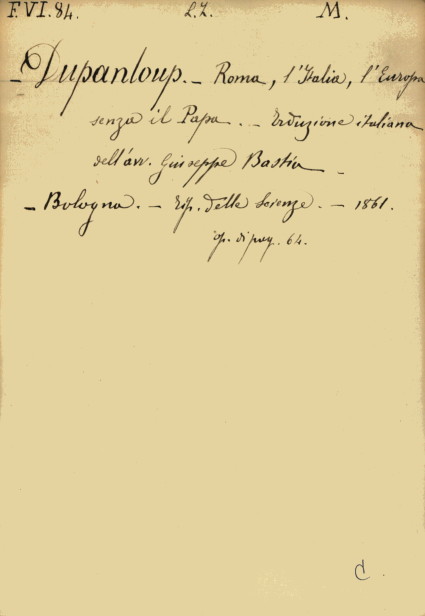 F.VI.84. L.Z. M.
- Dupanloup. - Roma, l'Italia, l'Europa
senza il Papa. - Traduzione italiana
dell'avv. Giuseppe Bastia -
- Bologna. - Tip. delle Scienze. - 1861.
op. di pag. 64.
C.